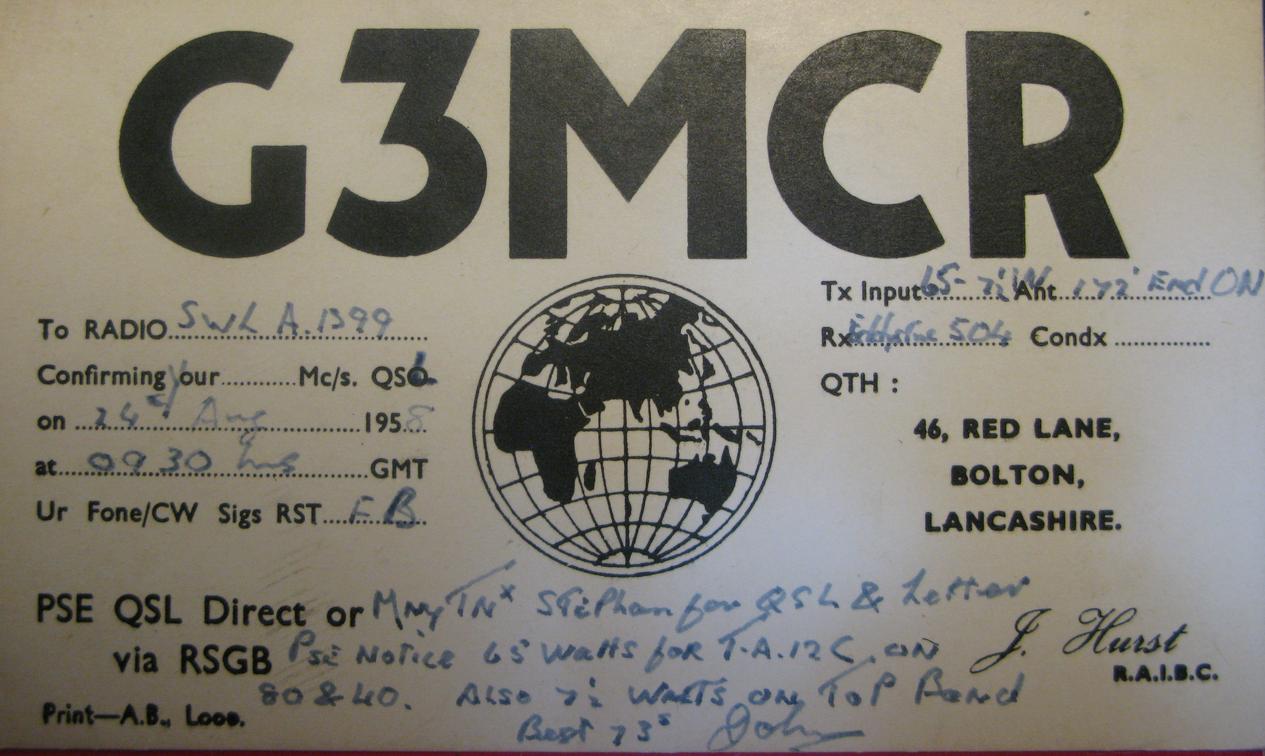 G3MCR
To RADIO SWL A.1399
Confirming Your Mc/s. QSL
on 24th Aug 1958
at 0930 hrs GMT
Ur Fone/CW Sigs RST FB
Tx Input 65-7½W Ant 172' End ON
Rx Eddystone 504 Condx
QTH :
46, RED LANE,
BOLTON,
LANCASHIRE.
PSE QSL Direct or
via RSGB
Mny Tnx Stephan for QSL & Letter
Pse Notice 65 Watts for T.A.12C. ON
80 & 40. Also 7½ Watts on Top Band
Best 73s John
J. Hurst
R.A.I.B.C.
Print—A.B., Looe.